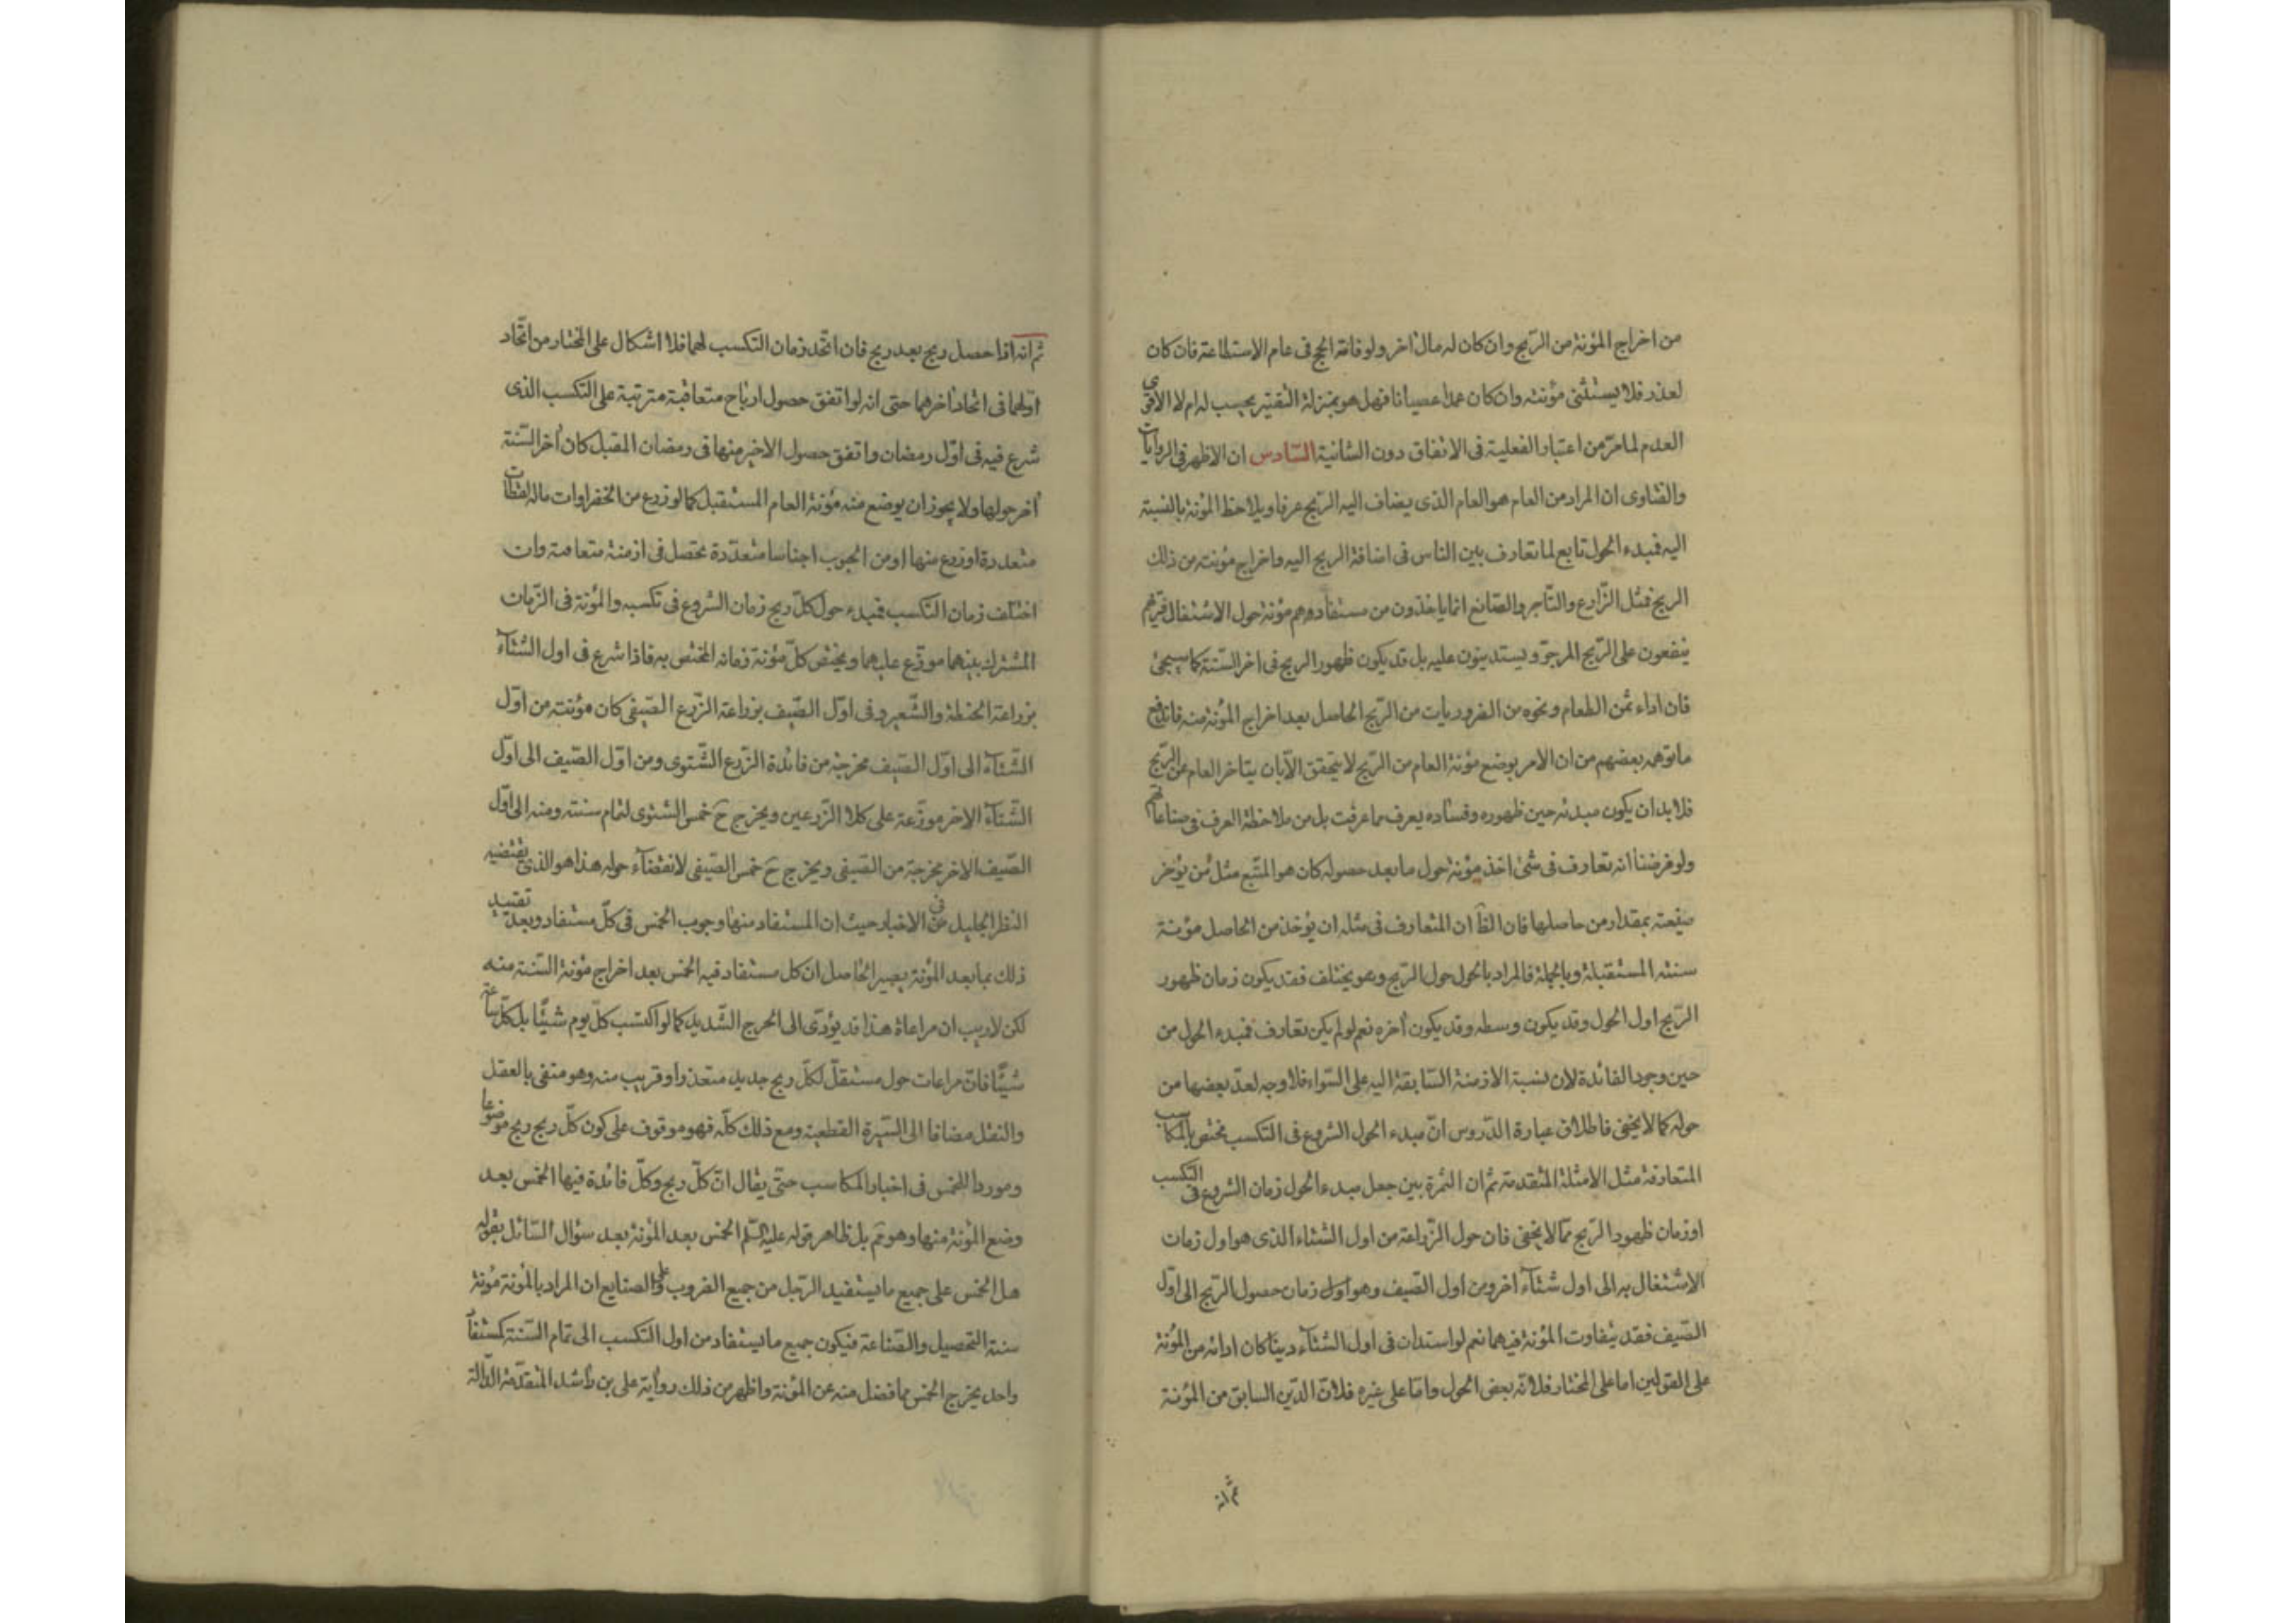 من اخراج المؤنة من الربح وان كان له مال اخر ولو فاته الحج فى عام الاستطاعة فان كان
لعذر فلا يستثنى مؤنته وان كان عمدا عصيانا فهل هو بمنزلة التقتير يحسب له ام لا الاقوى
العدم لما مر من اعتبار الفعلية فى الانفاق دون الشانية السادس ان الاظهر فى الروايات
والفتاوى ان المراد من العام هو العام الذى يضاف اليه الربح عرفا ويلاحظ المؤنة بالنسبة
اليه فمبدء الحول تابع لما تعارف بين الناس فى اضافة الربح اليه واخراج مؤنته من ذلك
الربح فمثل الزارع والتاجر والصانع انما ياخذون من مستفادهم مؤنة حول الاشتغال فتريهم
ينفعون على الربح المرجو ويستدينون عليه بل قد يكون ظهور الربح فى اخر السنة كما سيجئ
فان اداء ثمن الطعام ونحوه من الضروريات من الربح الحاصل بعد اخراج المؤنة منه فاندفع
ما توهمه بعضهم من ان الامر بوضع مؤنة العام من الربح لا يتحقق الا بان يتاخر العام عن الربح
فلا بد ان يكون مبدئه حين ظهوره وفساده يعرف مما عرفت بل من ملاحظة العرف فى صناعاتهم
ولو فرضنا انه تعارف فى شئ اخذ مؤنة حول ما بعد حصوله كان هو المتبع مثل من يؤجر
ضيعته بمقدار من حاصلها فان الظ ان المتعارف فى مثله ان يؤخذ من الحاصل مؤنة
سنته المستقبلة وبالجملة فالمراد بالحول حول الربح وهو يختلف فقد يكون زمان ظهور
الربح اول الحول وقد يكون وسطه وقد يكون آخره نعم لو لم يكن تعارف فمبدء الحول من
حين وجود الفائدة لان نسبة الازمنة السابقة اليه على السواء فلا وجه لعد بعضها من
حوله كما لا يخفى فاطلاق عبارة الدروس ان مبدء الحول الشروع فى التكسب مختص بالمكاسب
المتعارفة مثل الامثلة المتقدمة ثم ان الثمرة بين جعل مبدء الحول زمان الشروع فى التكسب
او زمان ظهور الربح مما لا يخفى فان حول الزراعة من اول الشتاء الذى هو اول زمان
الاشتغال به الى اول شتاء اخر ومن اول الصيف وهو اول زمان حصول الربح الى اول
الصيف فقد يتفاوت المؤنة فيهما نعم لو استدان فى اول الشتاء دينا كان ادائه من المؤنة
على القولين اما على المختار فلانه بعض الحول واما على غيره فلان الدين السابق من المؤنة
ثم انه
ثم انه اذا حصل ربح بعد ربح فان اتحد زمان التكسب لهما فلا اشكال على المختار من اتحاد
اولهما فى اتحاد اخرهما حتى انه لو اتفق حصول ارباح متعاقبة مترتبة على التكسب الذى
شرع فيه فى اول رمضان واتفق حصول الاخير منها فى رمضان المقبل كان آخر السنة
آخر حولها ولا يجوز ان يوضع منه مؤنة العام المستقبل كما لو زرع من الخضراوات ماله لقطات
متعددة او زرع منها او من الحبوب اجناسا متعددة تحصل فى ازمنة متعاقبة وان
اختلف زمان التكسب فمبدء حول كل ربح زمان الشروع فى تكسبه والمؤنة فى الزمان
المشترك بينهما موزع عليهما ويختص كل مؤنة زمانه المختص به فاذا شرع فى اول الشتاء
بزراعة الحنطة والشعير وفى اول الصيف بزراعة الزرع الصيفى كان مؤنته من اول
الشتاء الى اول الصيف مخرجة من فائدة الزرع الشتوى ومن اول الصيف الى اول
الشتاء الاخر موزعة على كلا الزرعين ويخرج ح خمس الشتوى لتمام سنته ومنه الى اول
الصيف الاخر مخرجة من الصيفى ويخرج ح خمس الصيفى لانقضاء حوله هذا هو الذى يقتضيه
النظر الجليل فى الاخبار حيث ان المستفاد منها وجوب الخمس فى كل مستفاد وبعد تقييد
ذلك بما بعد المؤنة يصير الحاصل ان كل مستفاد فيه الخمس بعد اخراج مؤنة السنة منه
لكن لا ريب ان مراعاة هذا قد يؤدى الى الحرج الشديد كما لو اكتسب كل يوم شيئا بل كل ساعة
شيئا فان مراعات حول مستقل لكل ربح جديد متعذر او قريب منه وهو منفى بالعقل
والنقل مضافا الى السيرة القطعية ومع ذلك كله فهو موقوف على كون كل ربح ربح موضوعا
وموردا للخمس فى اخبار المكاسب حتى يقال ان كل ربح وكل فائدة فيها الخمس بعد
وضع المؤنة منها وهو تم بل ظاهر قوله عليه السلم الخمس بعد المؤنة بعد سؤال السائل بقوله
هل الخمس على جميع ما يستفيد الرجل من جميع الضروب وعلى الصنايع ان المراد بالمؤنة مؤنة
سنة التحصيل والصناعة فيكون جميع ما يستفاد من اول التكسب الى تمام السنة كمستفاد
واحد يخرج الخمس مما فضل منه عن المؤنة واظهر من ذلك رواية على بن راشد المتقدمة الدالة